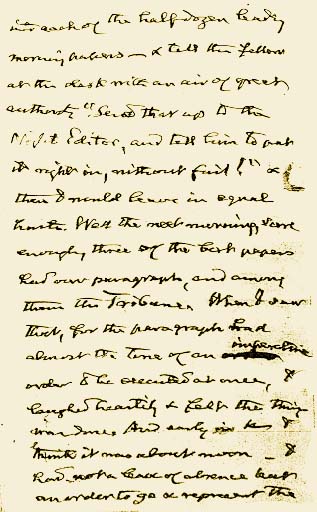 into each of the half dozen leading
morning papers — & tell the fellow
at the desk with an air of great
authority "Send that up to the
Night Editor, and tell him to put
it right in, without fail!" &
then I would leave in equal
haste. Well the next morning, sure
enough, three of the best papers
had our paragraph, and among
them the Tribune. When I saw
that, for the paragraph had
imperative
almost the tone of an
order to be executed at once, I
laughed heartily & felt the thing
was done. And early in the
I think it was about noon — I
had not a leave of absence but
an order to go & represent the